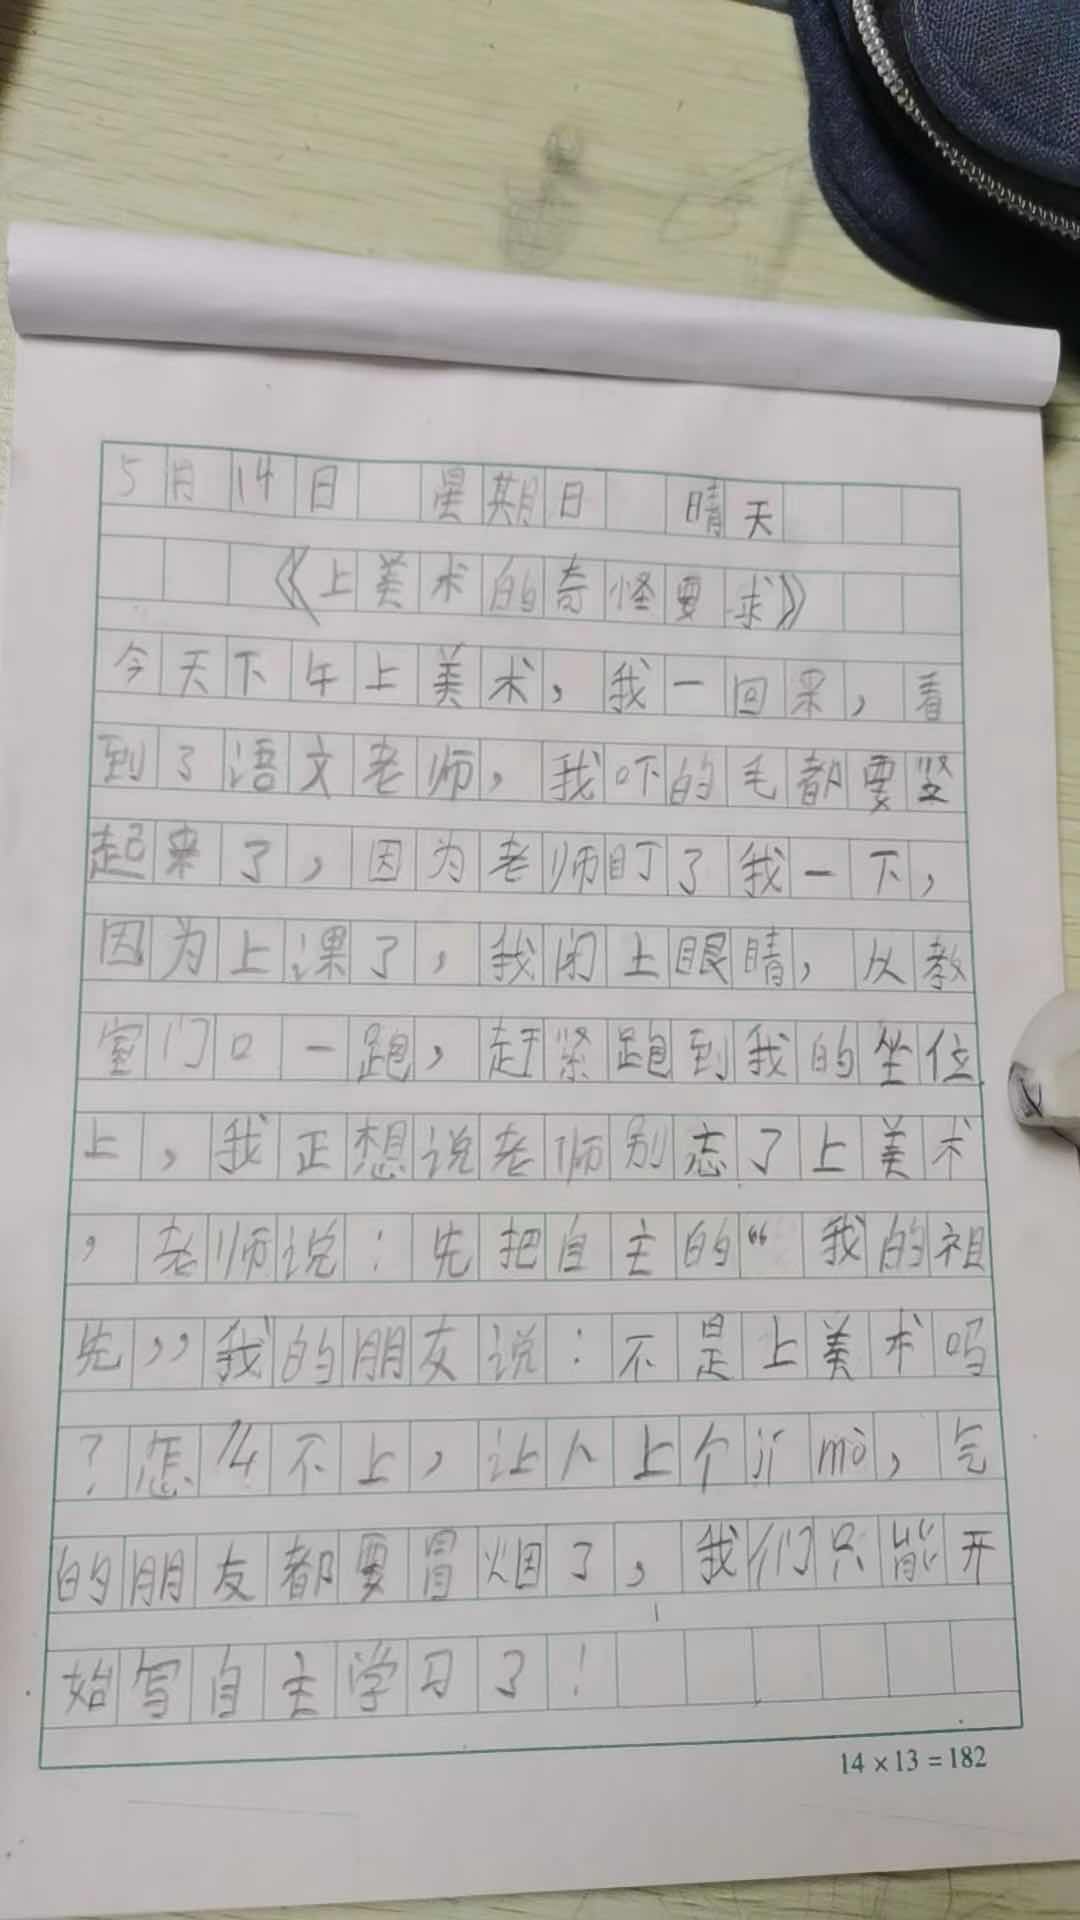 5月14日 星期日 晴天
《上美术的奇怪要求》
今天下午上美术，我一回呆，看
到了语文老师，我吓的毛都要竖
起来了，因为老师盯了我一下，
因为上课了，我闭上眼睛，从教
室门口一跑，赶紧跑到我的坐位
上，我正想说老师别忘了上美术
，老师说：先把自主的“我的祖
先”我的朋友说：不是上美术吗
？怎么不上，让人上个jī mò，气
的朋友都要冒烟了，我们只能开
始写自主学习了！
14×13=182